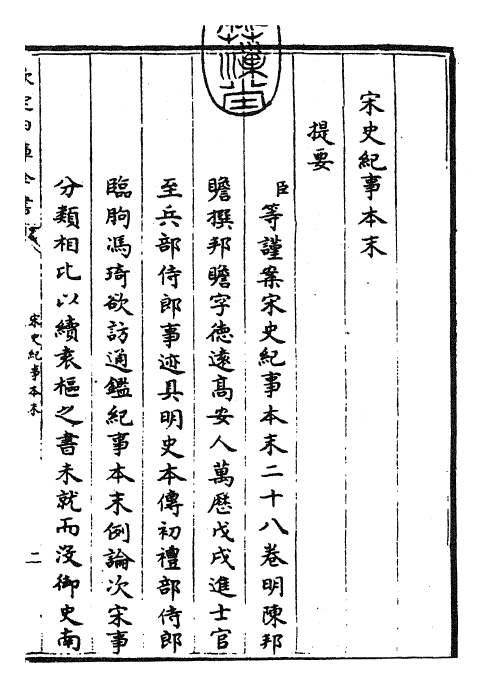 宋史紀事本末
提要
臣等謹案宋史紀事本末二十八卷明陳邦
瞻撰邦瞻字德遠髙安人萬厯戊戌進士官
至兵部侍郎事迹具明史本傳初禮部侍郎
臨朐馮琦欲訪通鑑紀事本末例論次宋事
分類相比以續袁樞之書未就而沒御史南
宋史紀事本末
二